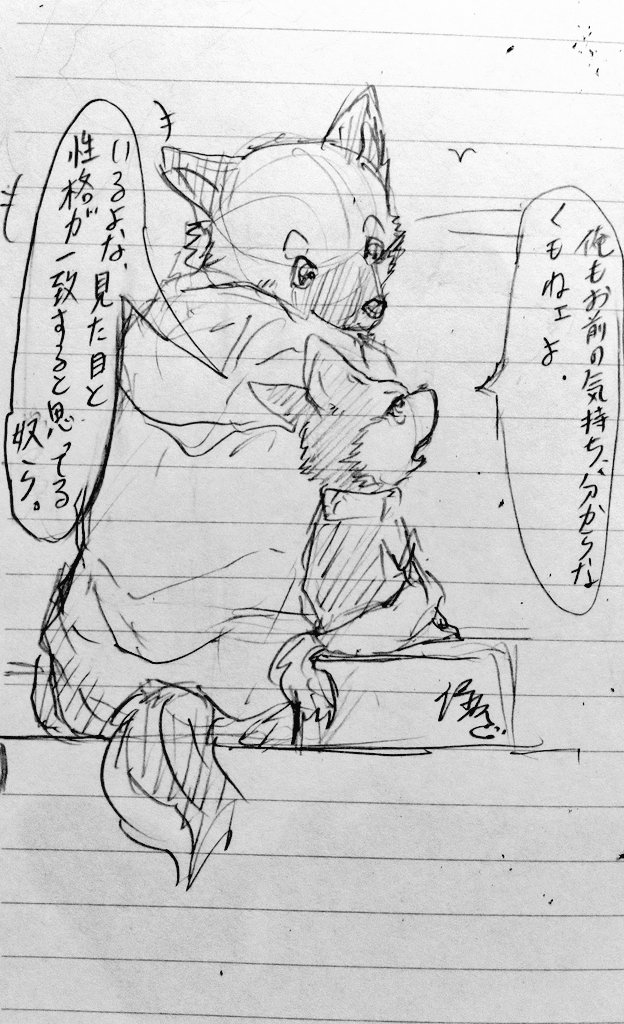 俺もお前の気持ち、分からな
くもねェよ。
いるよな、見た目と
性格が一致すると思ってる
奴ら。